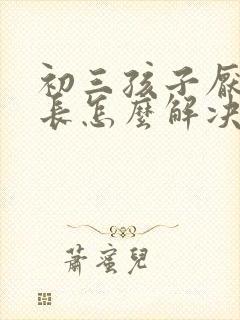 初三孩子厭
長怎麼解決
蕭蜜兒